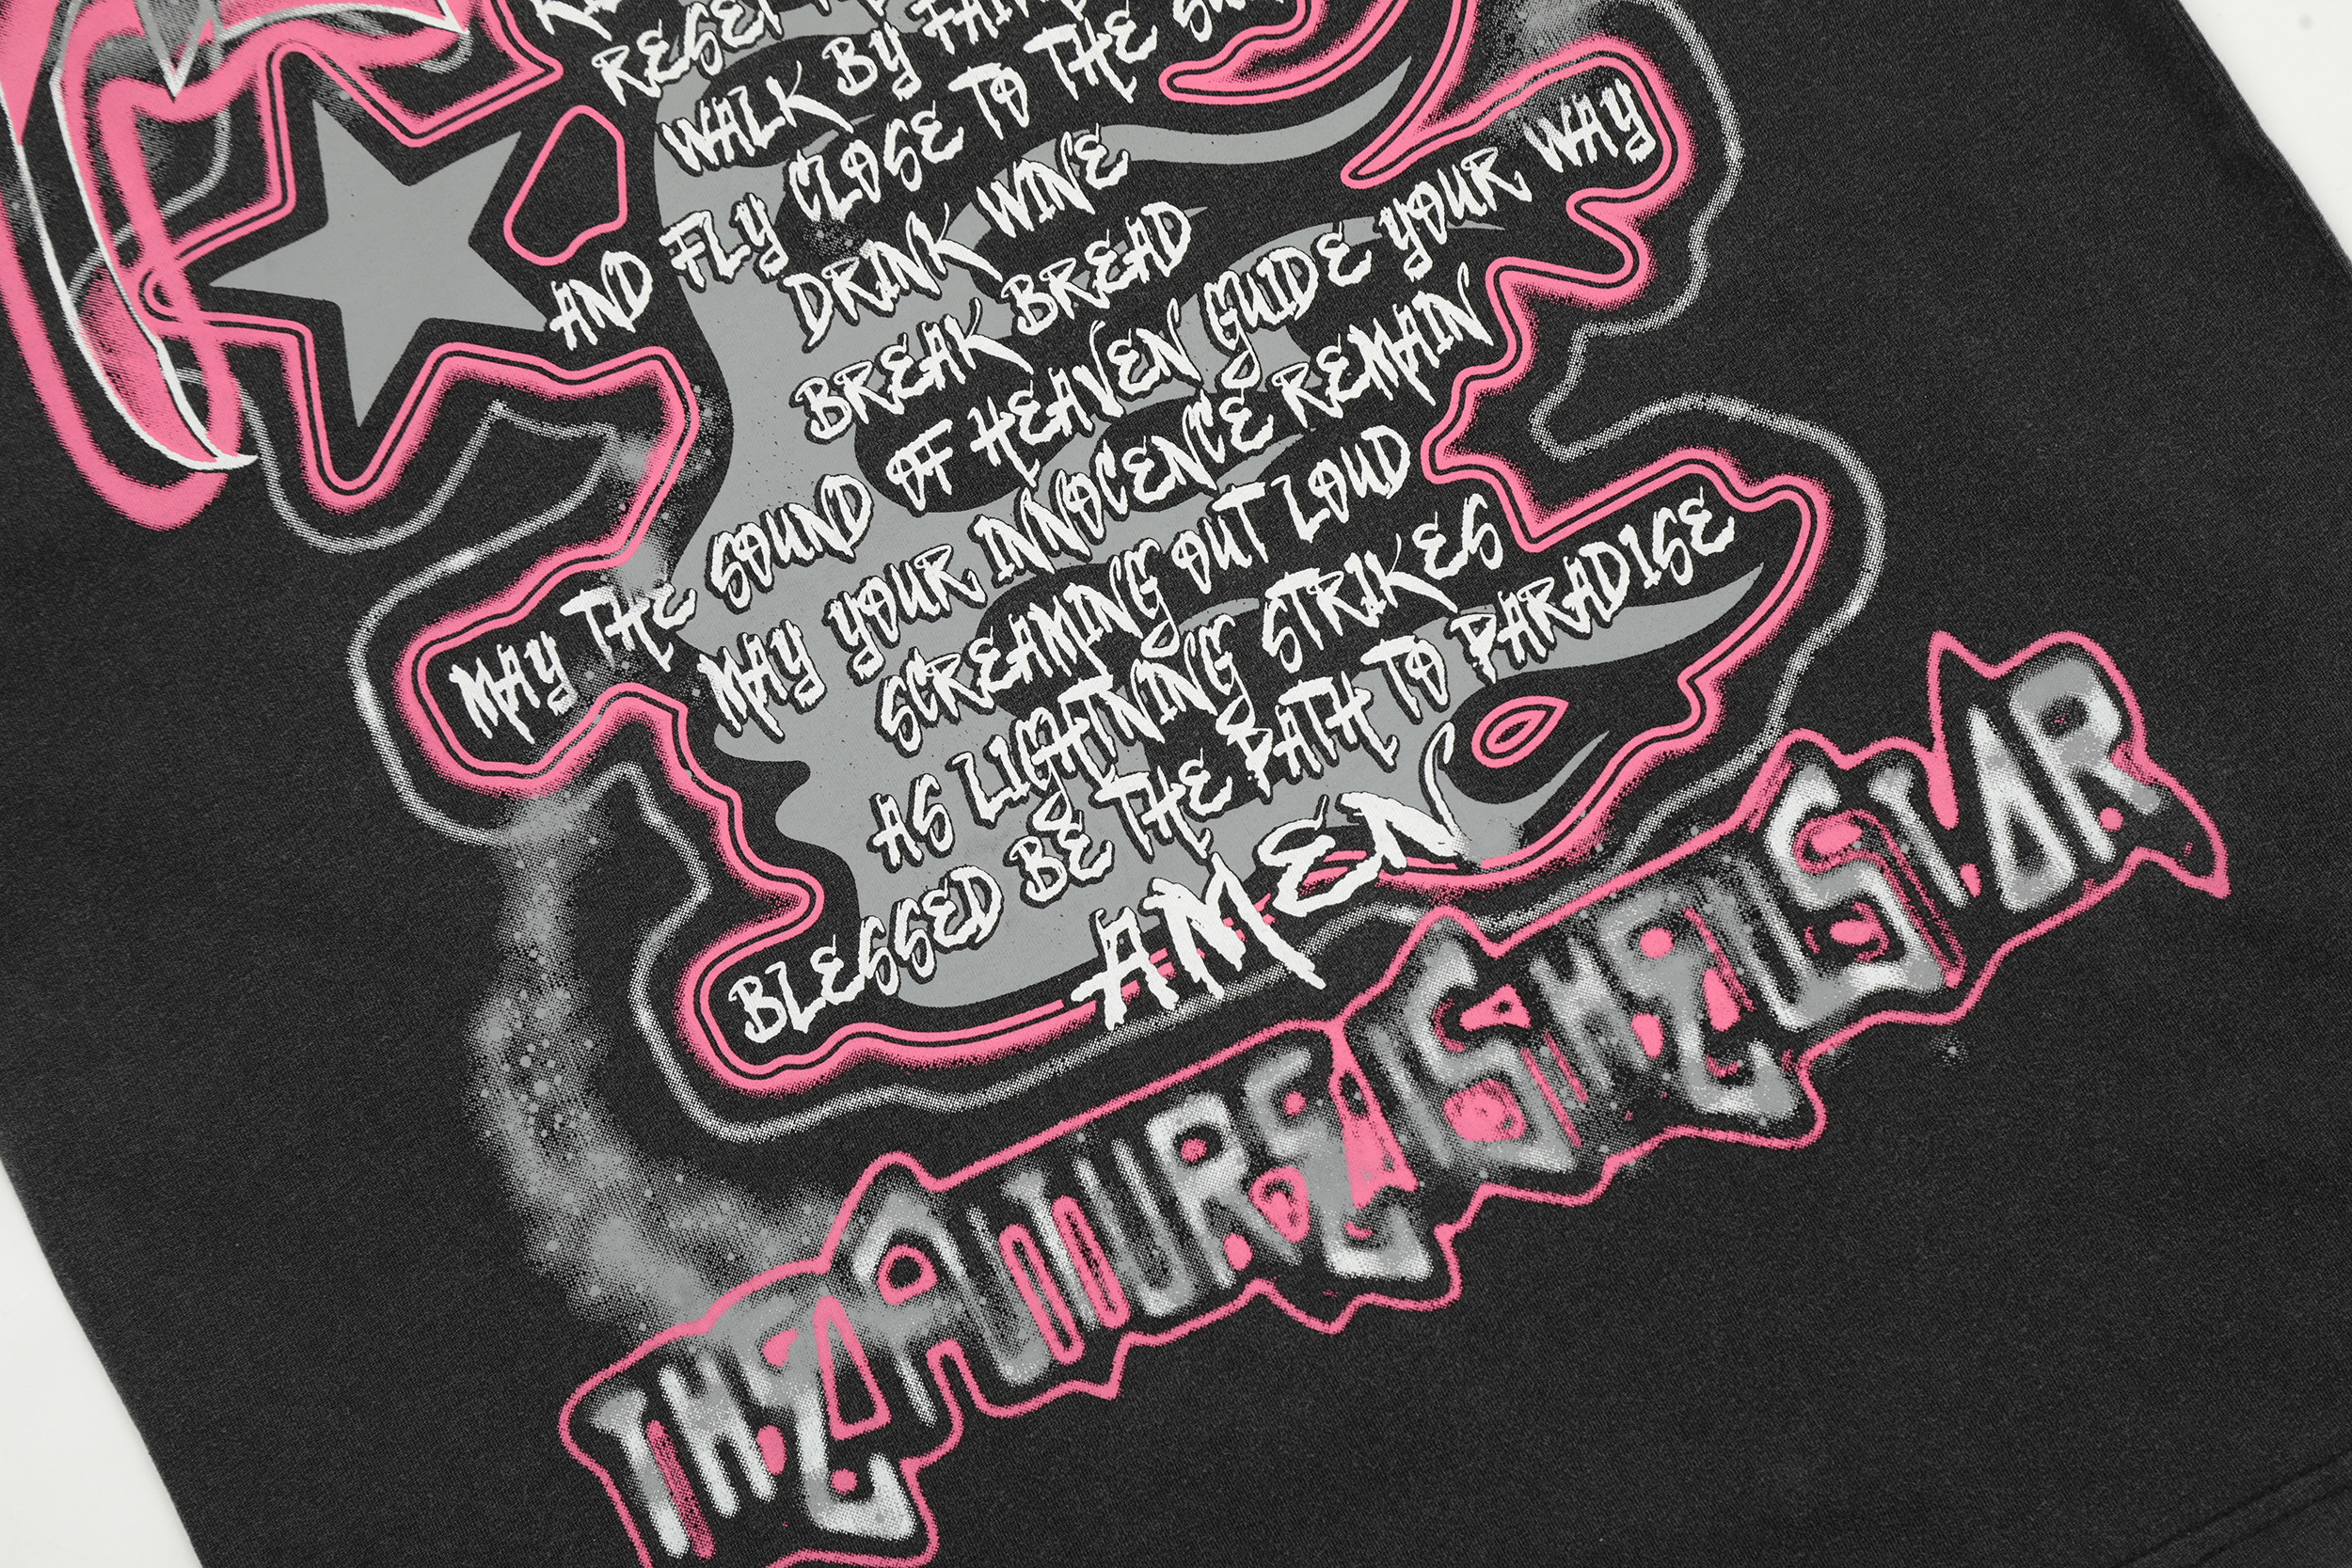 RESET
WALK BY FAITH
AND FLY CLOSE TO THE
DRINK WINE
BREAK BREAD
MAY THE SOUND OF HEAVEN GUIDE YOUR WAY
MAY YOUR INNOCENCE REMAIN
SCREAMING OUT LOUD
AS LIGHTNING STRIKES
BLESSED BE THE PATH TO PARADISE
AMEN
THE FUTURE IS HELLSTAR